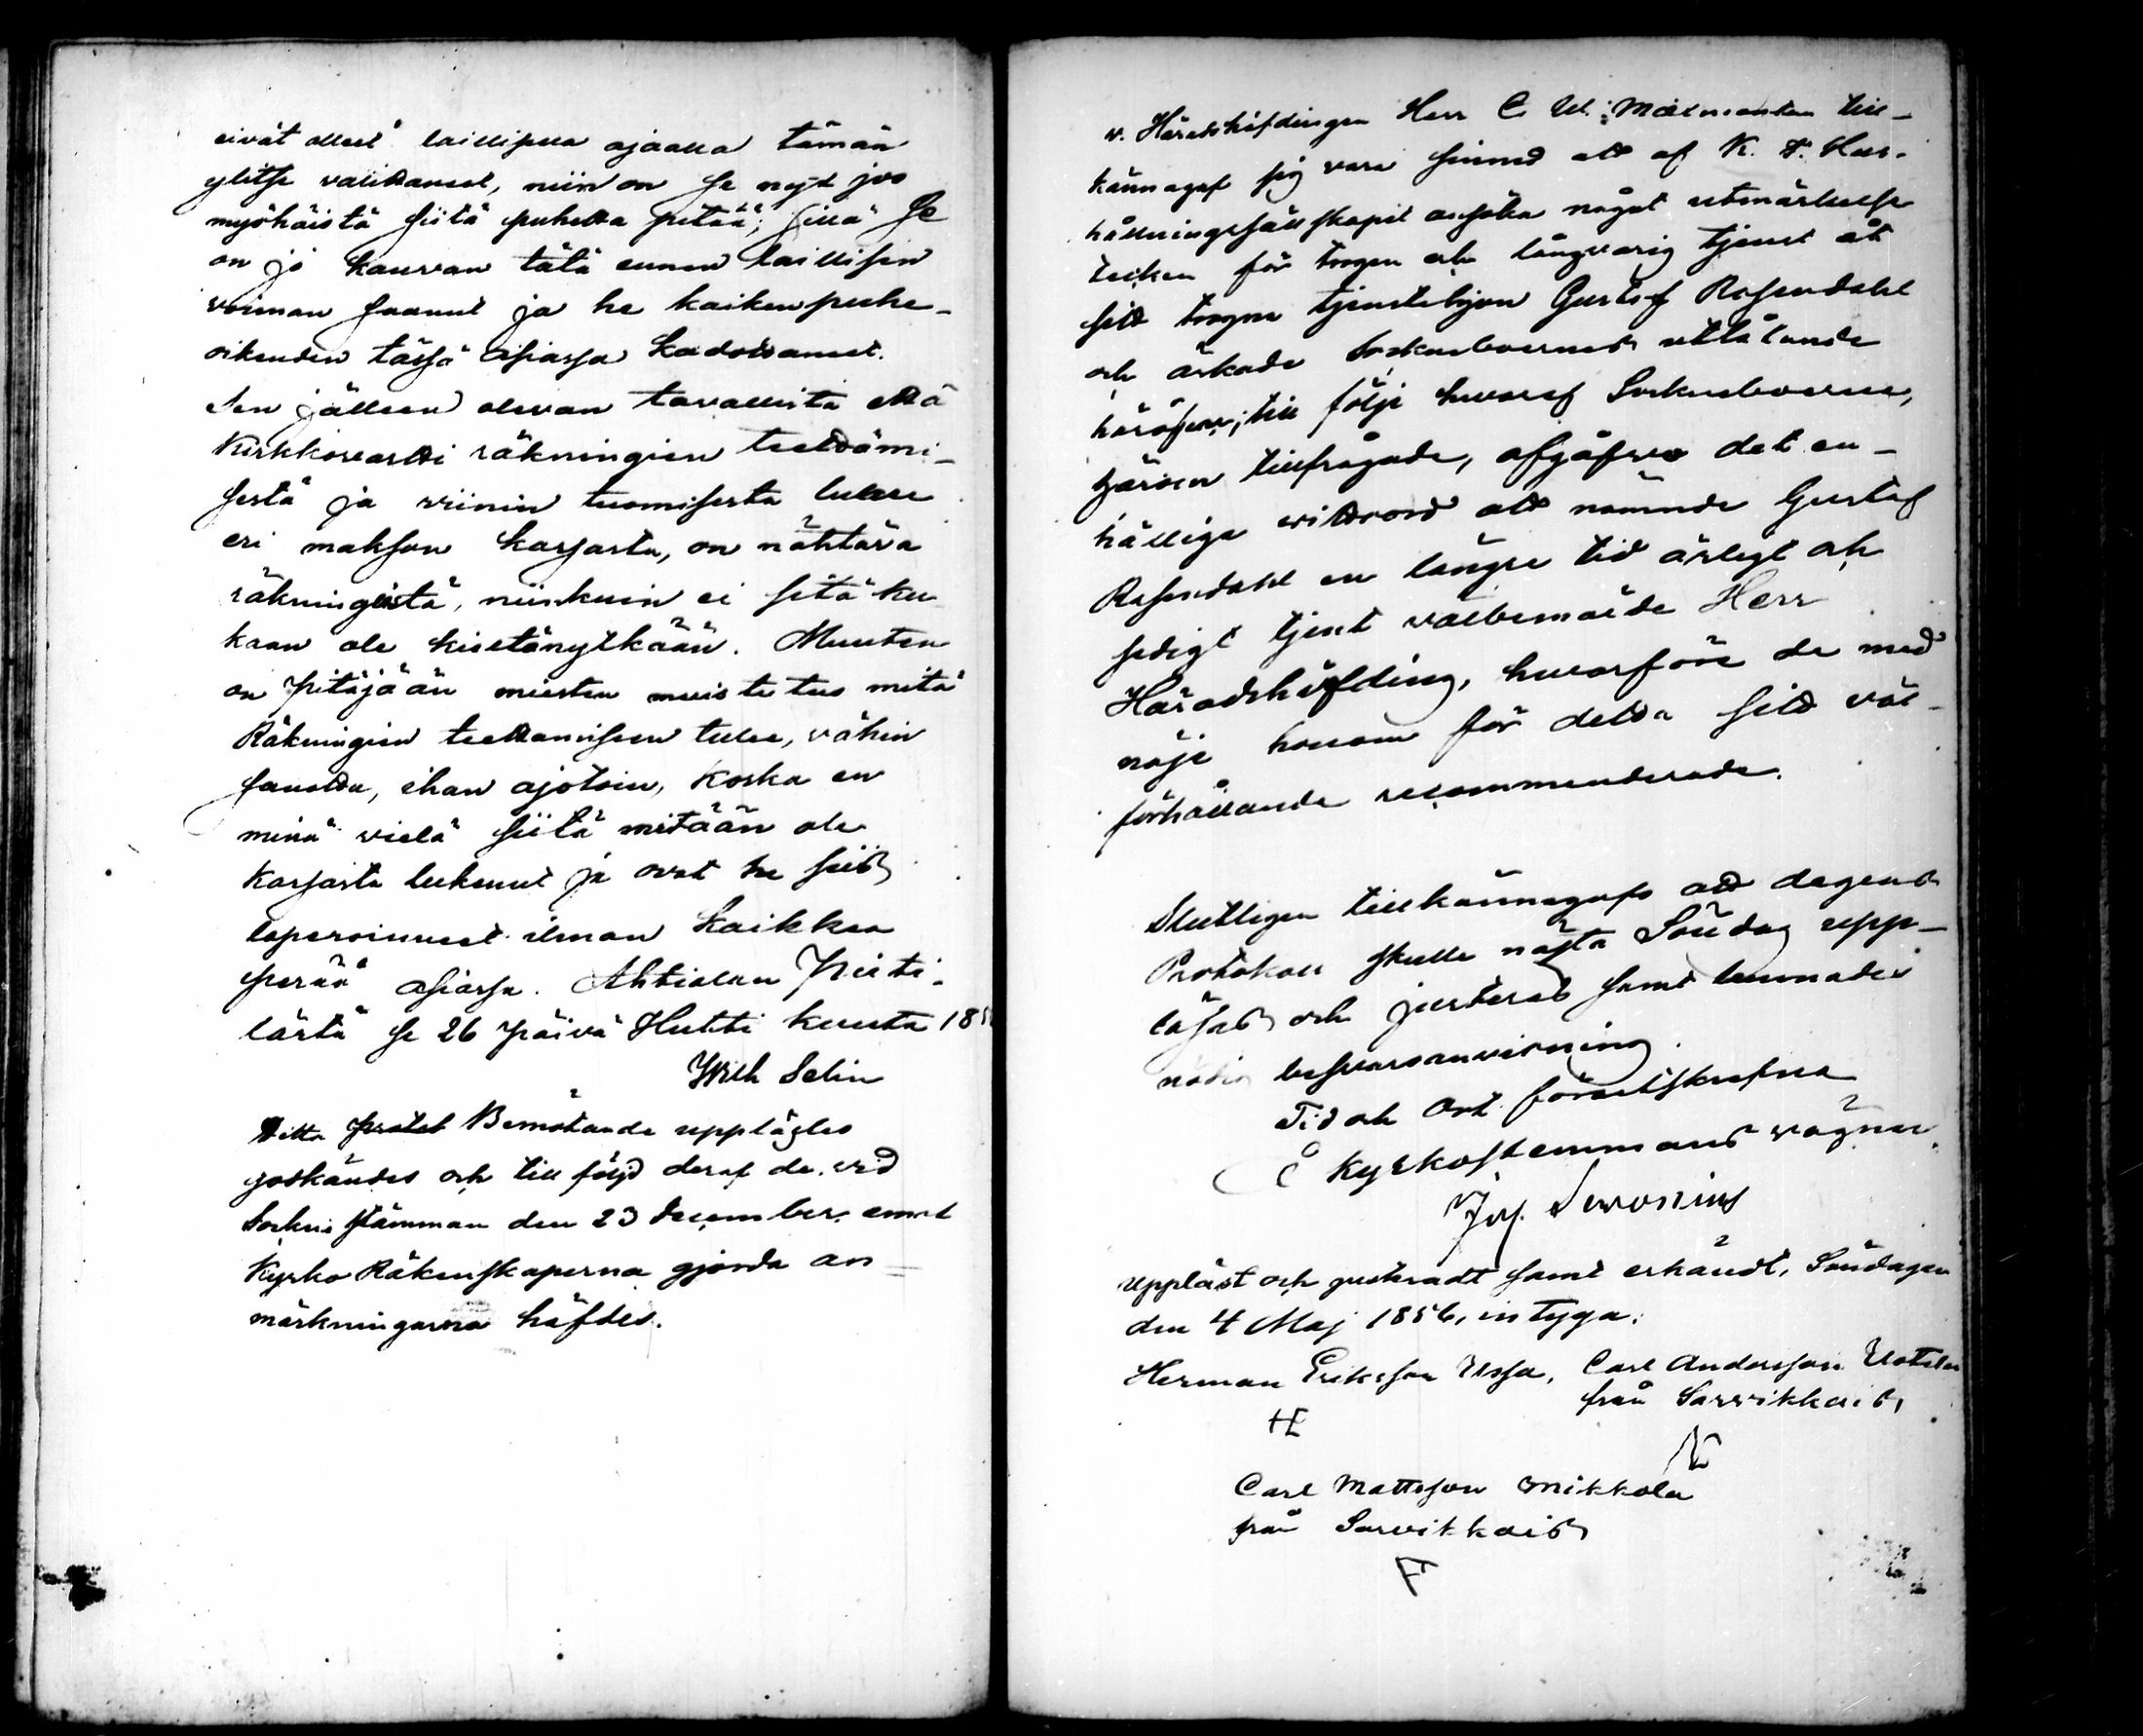 eivät olleet laillisella ajaalla tämän
ylitse valittaneet, niin on se nyt joo
myöhäistä siitä puhetta pitää; sillä se
on jo kauvan tätä ennen laillisen
voiman saanut ja he kaiken puhe-
oikeuden tässä asiassa kadottaneet.
Sen jälleen olevan tavallista että
Kirkkovartti räkningien teettämi-
sestä ja viinin tuomisesta lukee
eri makson kassasta, on nähtävä
räkningistä, niinkuin ei sitä ku
kaan ole kieltänytkään. Muuten
on pitäjään miesten muistutus mitä
Räkningien teettamiseen tulee, vähin
sanottu, ihan ajotoin, koska en
minä vielä siitä mitään ole
kassasta lukenut ja ovat he siis
loperoinneet ilman kaikkea
perää asiassa. Ahtialan Pieti-
lästä se 26 päivä Huhti kuuta 18
Wilh Selin
Detta Bemötande upplästes
godkändes och till följd deraf de vid
Sockne stämman den 23 December emot
Kyrko Räkenskaperna gjorda an
märkningarna häfdes.
v. Häradshöfdingen Herr C. W. Malmsten till-
kännagaf sig vara sinnad att af K. F. Hus-
hållningssällskapet ansöka något utmärkelse
tecken för trogen och långvarig tjenst åt
sitt trogna tjenstehjon Gustaf Rosendahl
och äskade Socknboernes utlåtande
häröfver; till följe hvaraf Socknboerne,
härom tillfrågade, afgåfvo det en-
hälliga vittnord att nämnde Gustaf
Rosendahl en längre tid ärligt och
sedigt tjent välbemälde Herr
Häradshöfding, hvarföre de med
nöje honom för detta sitt väl-
förhållande recommenderade.
Slutligen tillkännagafs att dagens
Protokoll skulle nästa Söndag upp-
läsas och justeras samt lemnades
nödig besvärsanvisning.
Tid och Ort förutskrefna
På Kyrkostemmans vägnar
Jos. Snvonius
Uppläst och justeradt samt erkändt, Söndagen
den 4 Maj 1856, intyga:
Herman Eriksson Ussa, Carl Andersson Uotila
från Sarvikkais,
HE
Carl Mattsson Mikkola
från Sarvikkais